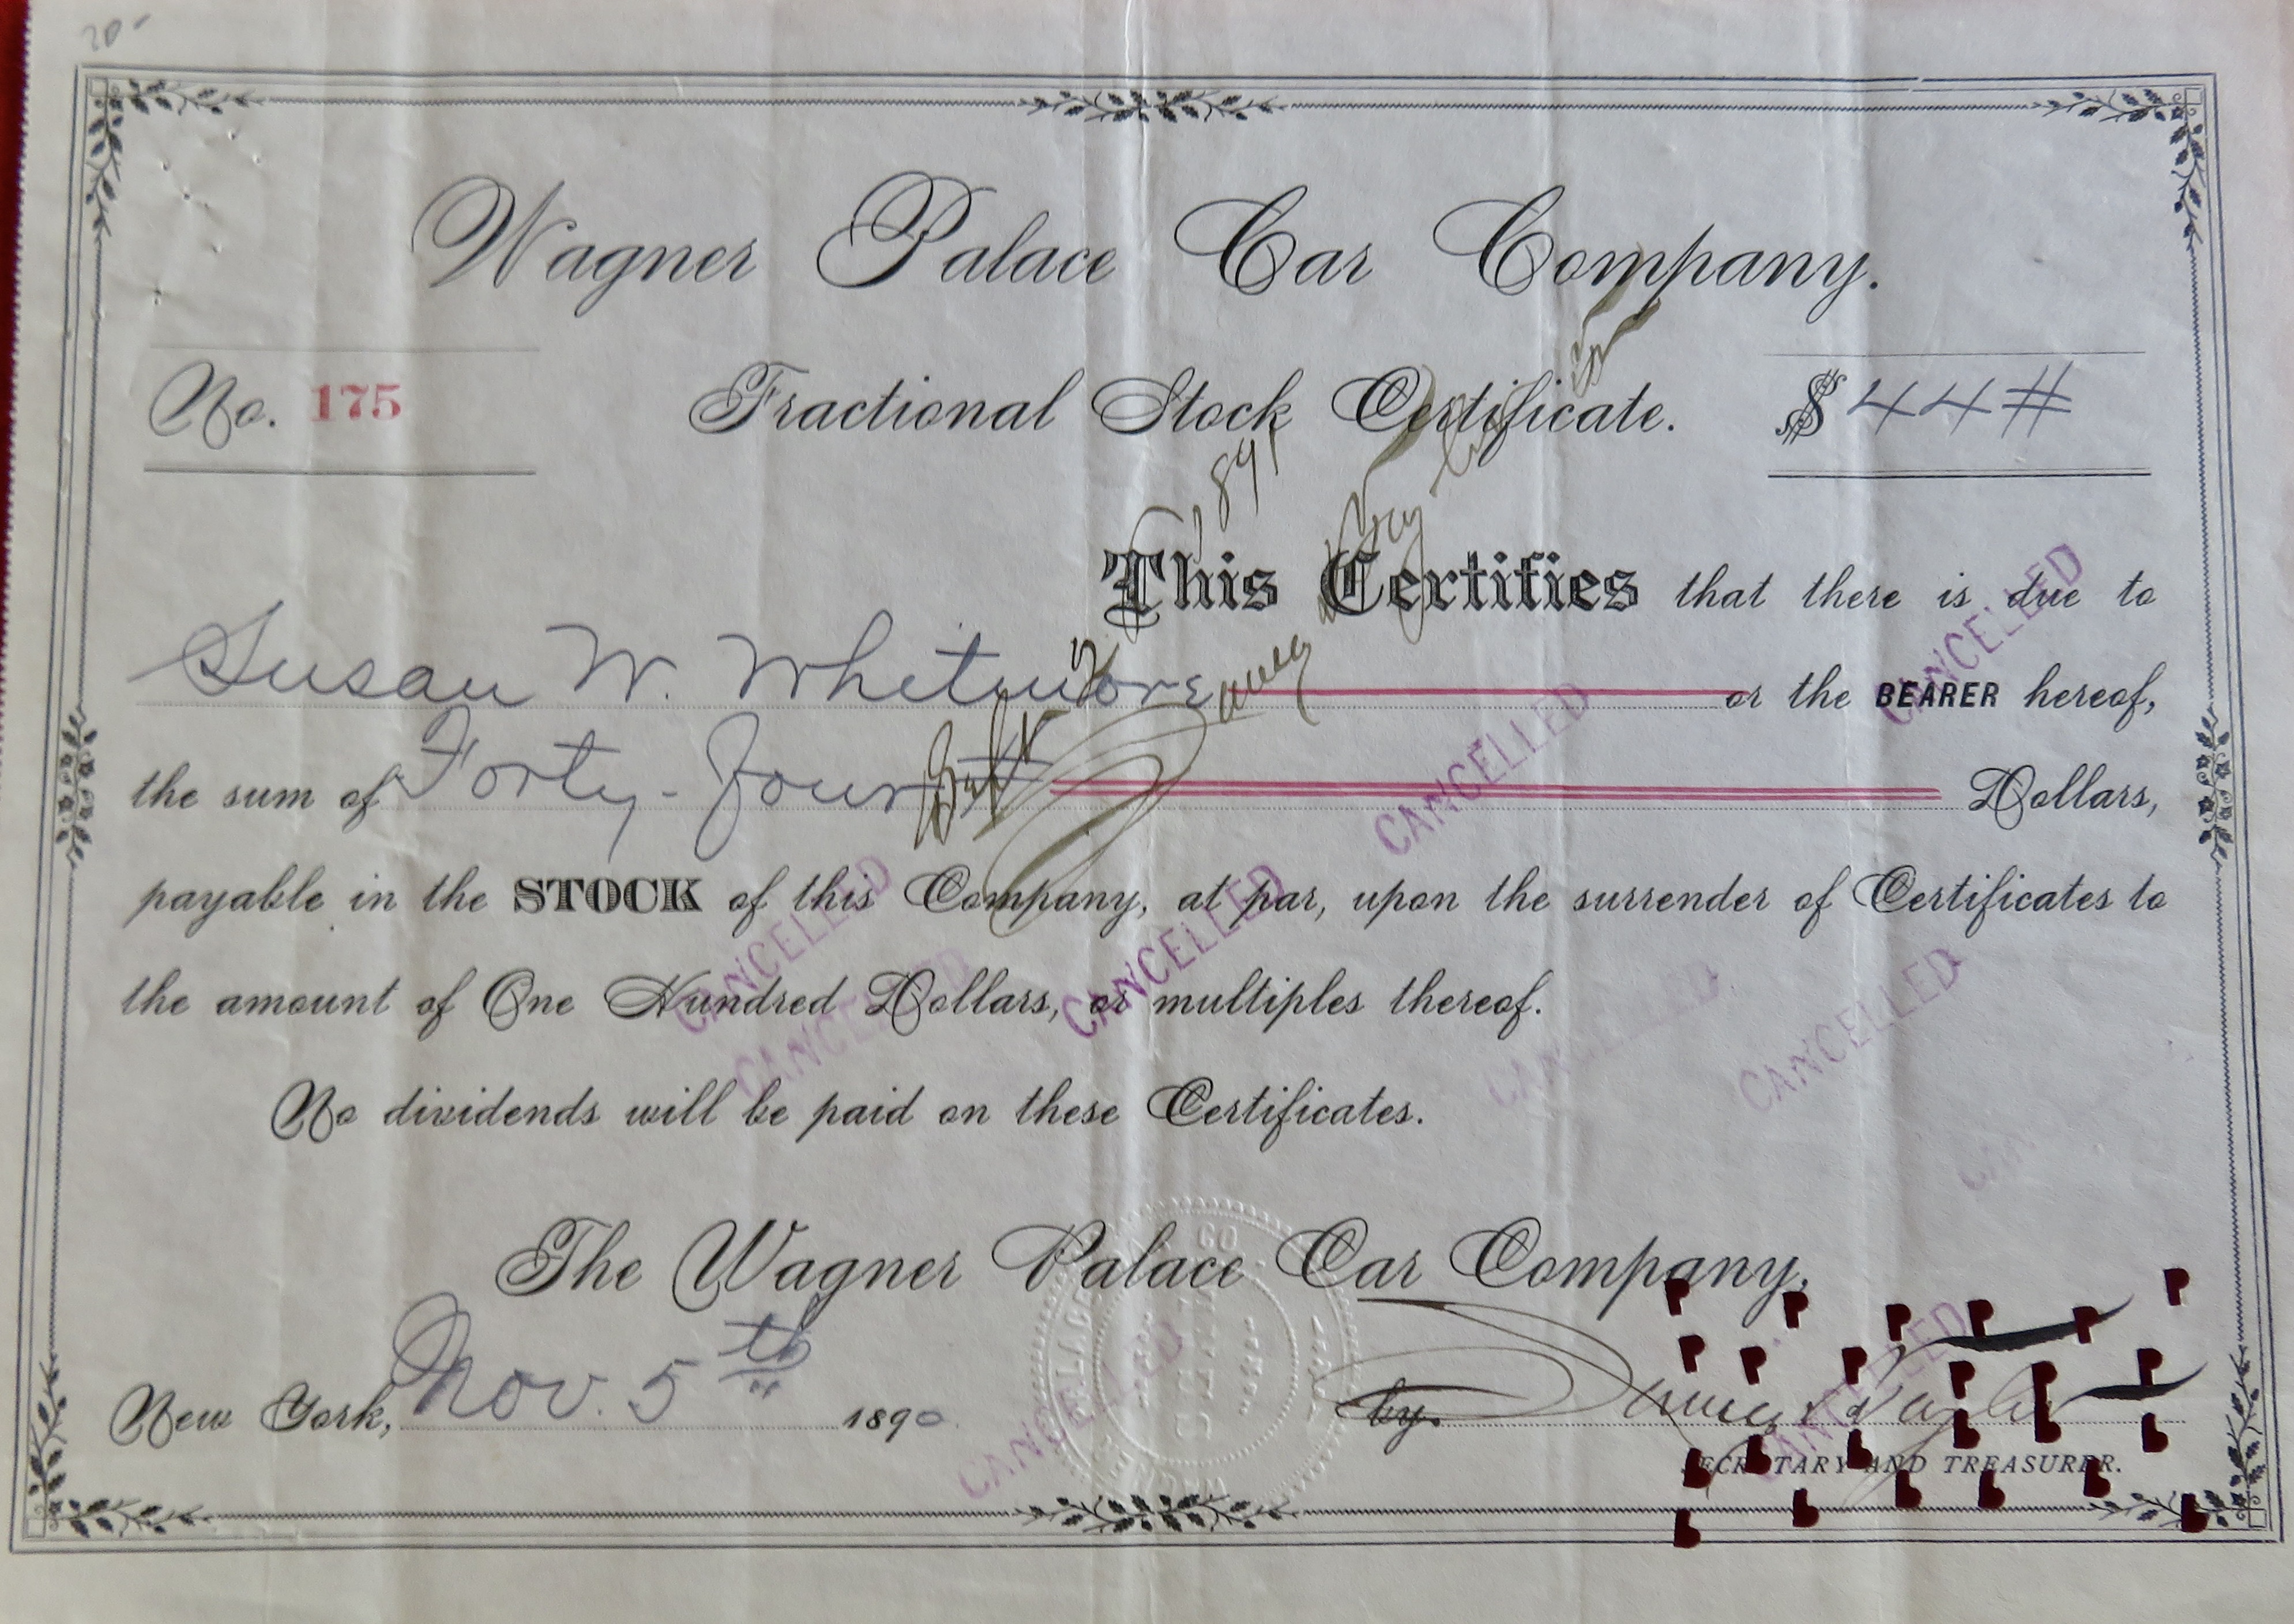 20-
Wagner Palace Car Company.
No. 175 Fractional Stock Certificate. $44#
1891
This Certifies that there is due to
Susan W. Whitmore or the BEARER hereof,
the sum of Forty-Four Dollars,
payable in the STOCK of this Company, at par, upon the surrender of Certificates to
the amount of One Hundred Dollars, or multiples thereof.
No dividends will be paid on these Certificates.
The Wagner Palace Car Company,
New York, Nov. 5th 1890 by
SECRETARY AND TREASURER.
CANCELLED
CANCELLED
CANCELLED
CANCELLED
CANCELLED
CANCELLED
CANCELLED
CANCELLED
CANCELLED